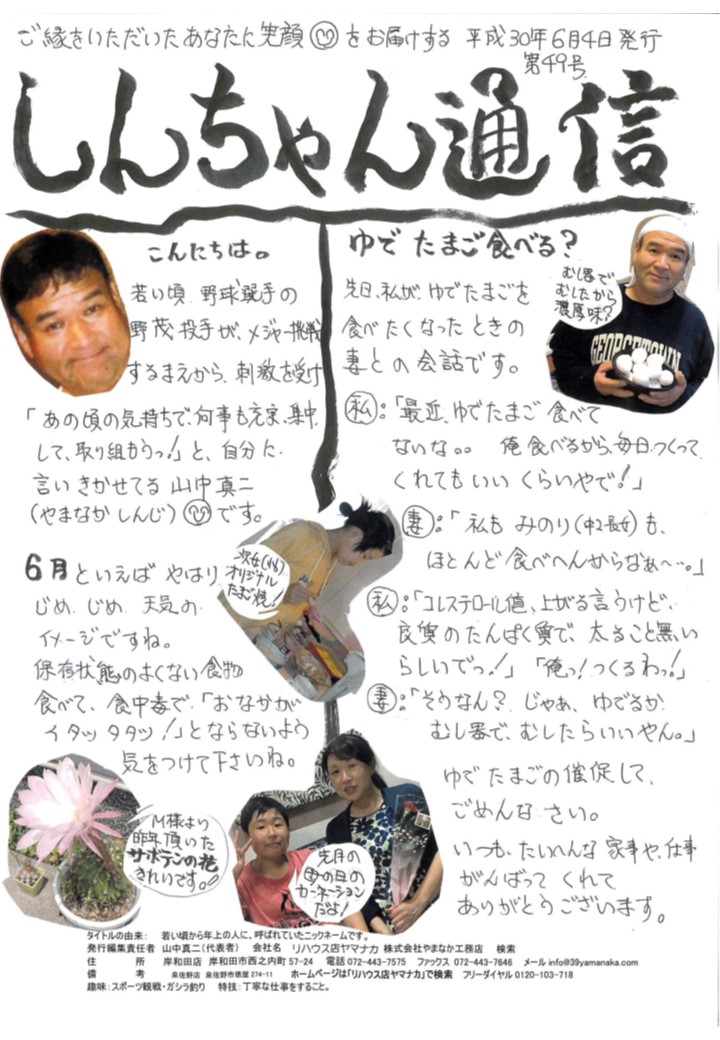 ご縁をいただいたあなたに笑顔をお届けする 平成30年6月4日発行
第49号
しんちゃん通信
こんにちは。
若い頃、野球選手の
野茂投手が、メジャー挑戦
するまえから、刺激を受け
「あの頃の気持ちで、何事も元ま、集中
して、取り組もうっ!」と、自分に
言いきかせてる 山中真二
(やまなかしんじ)です。
6月といえば やはり
じめ、じめ、天気の
イメージですね。
保存状態のよくない食物
食べて、食中毒で、「おなかが
イタッタタッ!」とならないよう
気をつけて下さいね。
M様より
昨年頂いた
サボテンの花
きれいです。
次女(小6)
オリジナル
たまご焼!
先月の
母の日の
カーネーション
だよ!
ゆでたまご食べる?
むし器で
むしたから
濃厚味?
GEORGETOWN
先日、私が、ゆでたまごを
食べたくなったときの
妻との会話です。
私:「最近、ゆでたまご食べて
ないな。。 俺食べるから、毎日、つくって
くれてもいいくらいやで!」
妻:「私もみのり(中2長女)も、
ほとんど食べへんからなぁ〜…。」
私:「コレステロール値、上がる言うけど、
良質のたんぱく質で、太ること無い
らしいでっ!」「俺っ!つくるわっ!」
妻:「そうなん?じゃあ、ゆでるか、
むし器で、むしたらいいやん。」
ゆでたまごの催促して、
ごめんなさい。
いつも、たいへんな家事や、仕事
がんばってくれて
ありがとうございます。
タイトルの由来: 若い頃から年上の人に、呼ばれていたニックネームです。
発行編集責任者 山中真二(代表者) 会社名 リハウス店ヤマナカ 株式会社やまなか工務店 検索
住 所 岸和田店 岸和田市西之内町57-24 電話 072-443-7575 ファックス 072-443-7646 メール info@39yamanaka.com
備 考 泉佐野店 泉佐野市俵屋274-11 ホームページは「リハウス店ヤマナカ」で検索 フリーダイヤル 0120-103-718
趣味:スポーツ観戦・ガシラ釣り 特技:丁寧な仕事をすること。